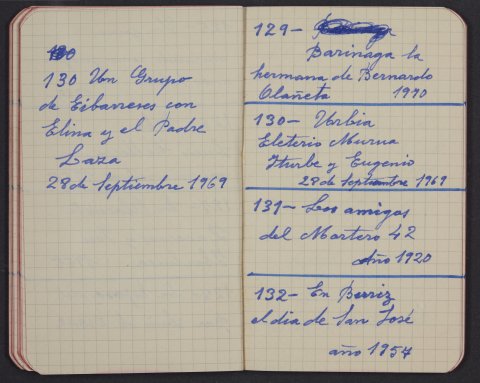 130 Un Grupo
de Eibarreses con
Elina y el Padre
Laza
28 de Septiembre 1969
129-
Barinaga la
hermana de Bernardo
Olañeta 1970
130- Urbia
Eleterio Murua
Iturbe y Eugenio
28 de Septiembre 1969
131- Los amigos
del Mortero 42
Año 1920
132- En Berriz
el dia de San José
año 1957